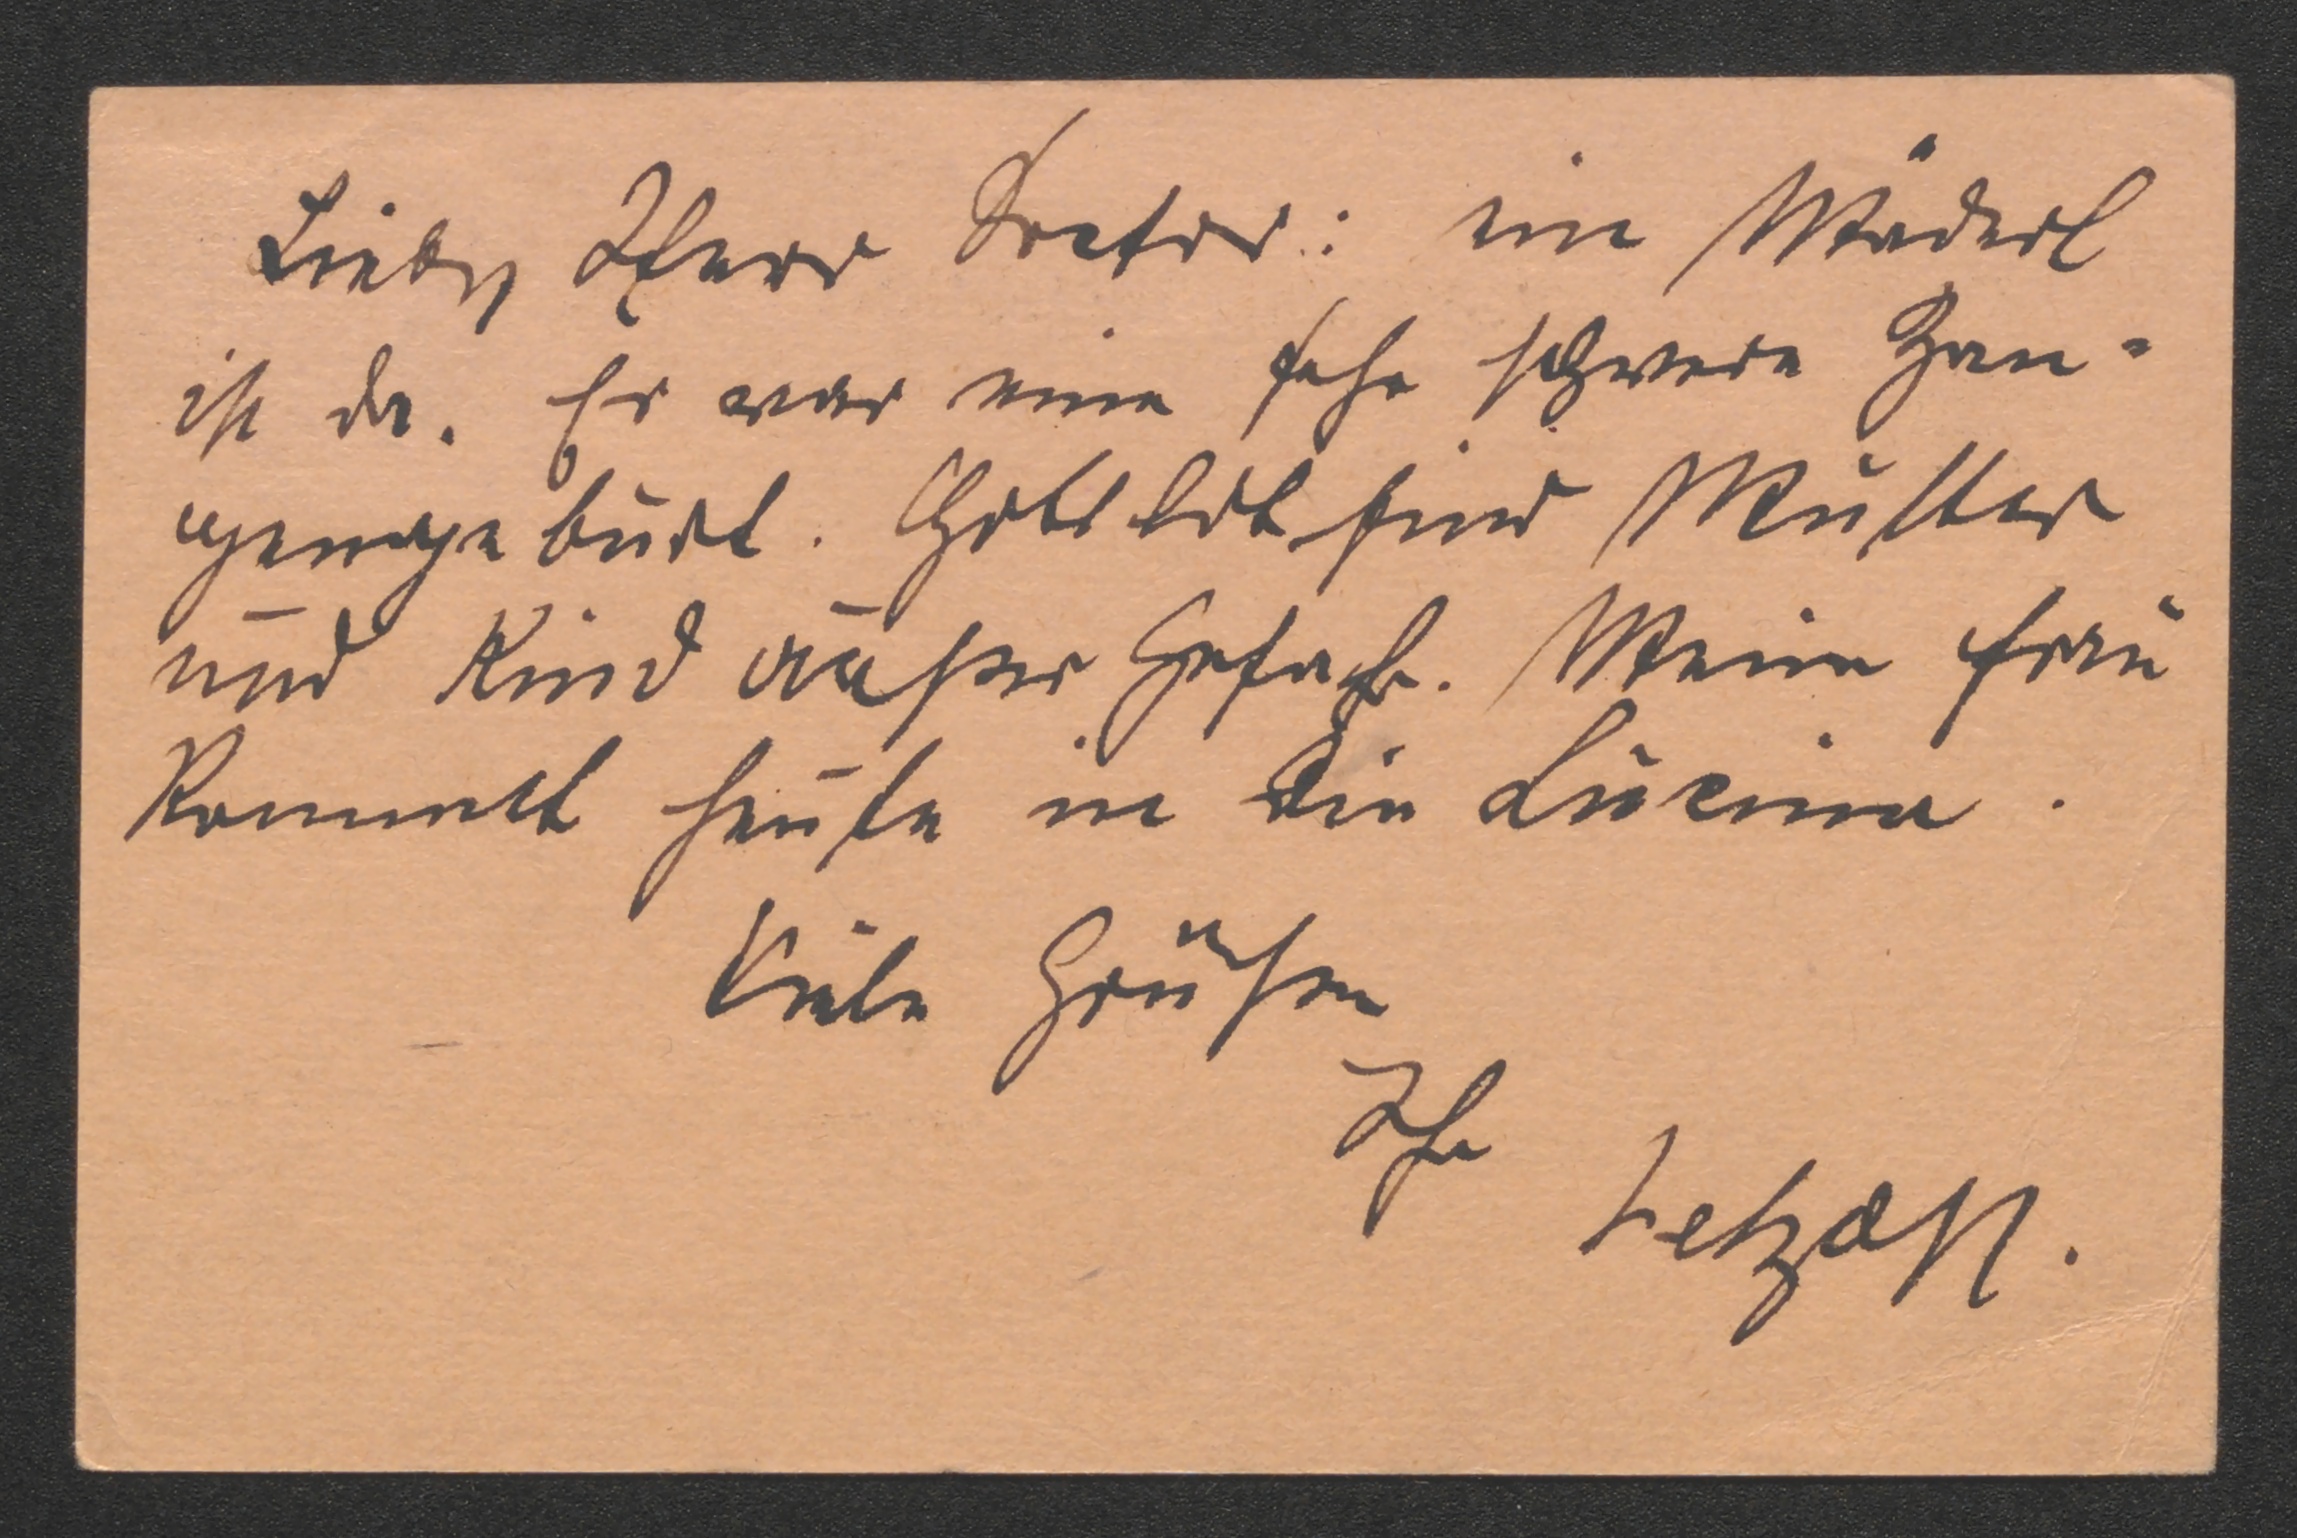 Lieber Herr Doctor: ein Mäderl
ist da. Es war eine sehr schwere Zan-
gengeburt. Gottlob sind Mutter
und Kind außer Gefahr. Meine Frau
kommt heute in die Lucina.
Viele Grüße
Ihr